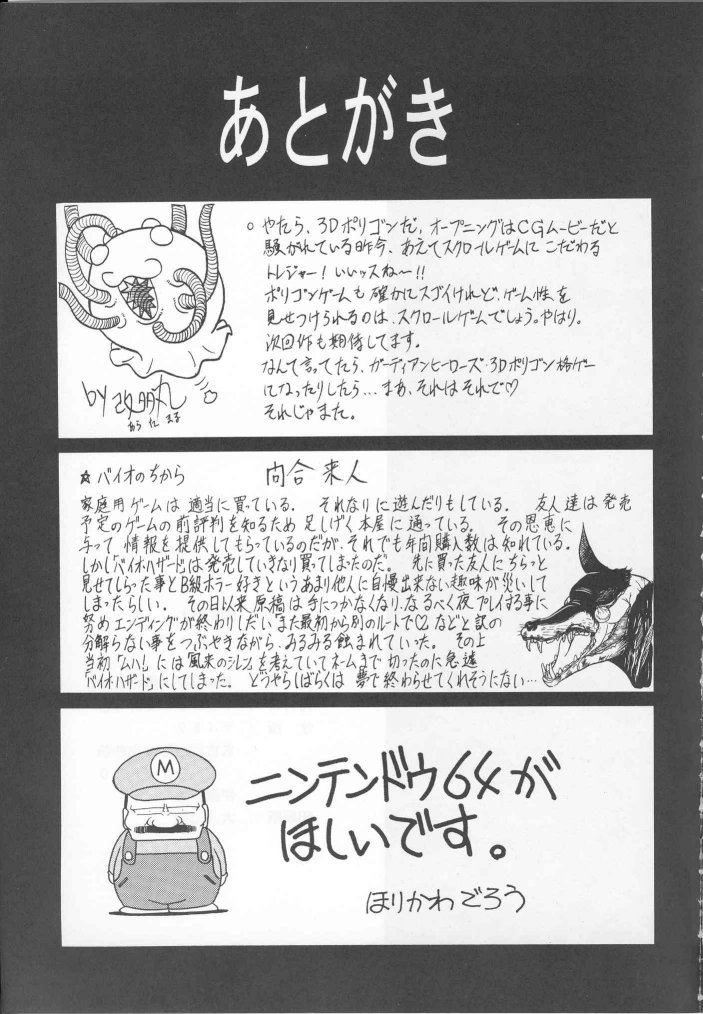 あとがき
○ やたら、3Dポリゴンだ、オープニングはCGムービーだと
騒がれている昨今、あえてスクロールゲームにこだわる
トレジャー！いいッスねー！！
ポリゴンゲームも確かにスゴイけれど、ゲーム性を
見せつけられるのは、スクロールゲームでしょう。やはり。
次回作も期待してます。
なんて言ってたら、ガーディアンヒーローズ・3Dポリゴン格ゲー
になったりしたら…まあ、それはそれで♡
それじゃまた。
by
☆ バイオのちから 向合来人
家庭用ゲームは適当に買っている。 それなりに遊んだりもしている。 友人達は発売
予定のゲームの前評判を知るため足しげく本屋に通っている。 その恩恵に
与って情報を提供してもらっているのだが、それでも年間購入数は知れている。
しかし「バイオハザード」は発売していきなり買ってしまったのだ。 先に買った友人にちらっと
見せてしらった事とB級ホラー好きというあまり他人に自慢出来ない趣味が災いして
しまったらしい。 その日以来原稿は手につかなくなり、なるべく夜プレイする事に
努めエンディングが終わりしだい「また最初から別のルートで〇2」などと訳の
分解らない事をつぶやきながら、みるみる蝕まれていった。 その上
当初「ムハ！」には「風来のシレン」を考えていてネームまで切ったのに急遽
「バイオハザード」にしてしまった。 どうやらしばらくは夢で終わらせてくれそうにない…
M
ニンテンドウ64が
ほしいです。
ほりかわごろう